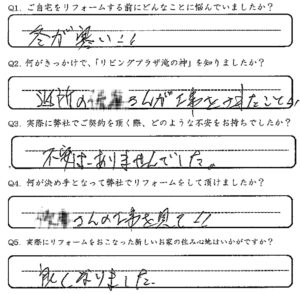 Q1. ご自宅をリフォームする前にどんなことに悩んでいましたか？
冬が寒い!!
Q2. 何がきっかけで、「リビングプラザ滝の神」を知りましたか？
近所の さんが工事をしたこと
Q3. 実際に弊社でご契約を頂く際、どのような不安をお持ちでしたか？
不安はありませんでした。
Q4. 何が決め手となって弊社でリフォームをして頂けましたか？
さんの工事を見て!!
Q5. 実際にリフォームをおこなった新しいお家の住み心地はいかがですか？
良くなりました。